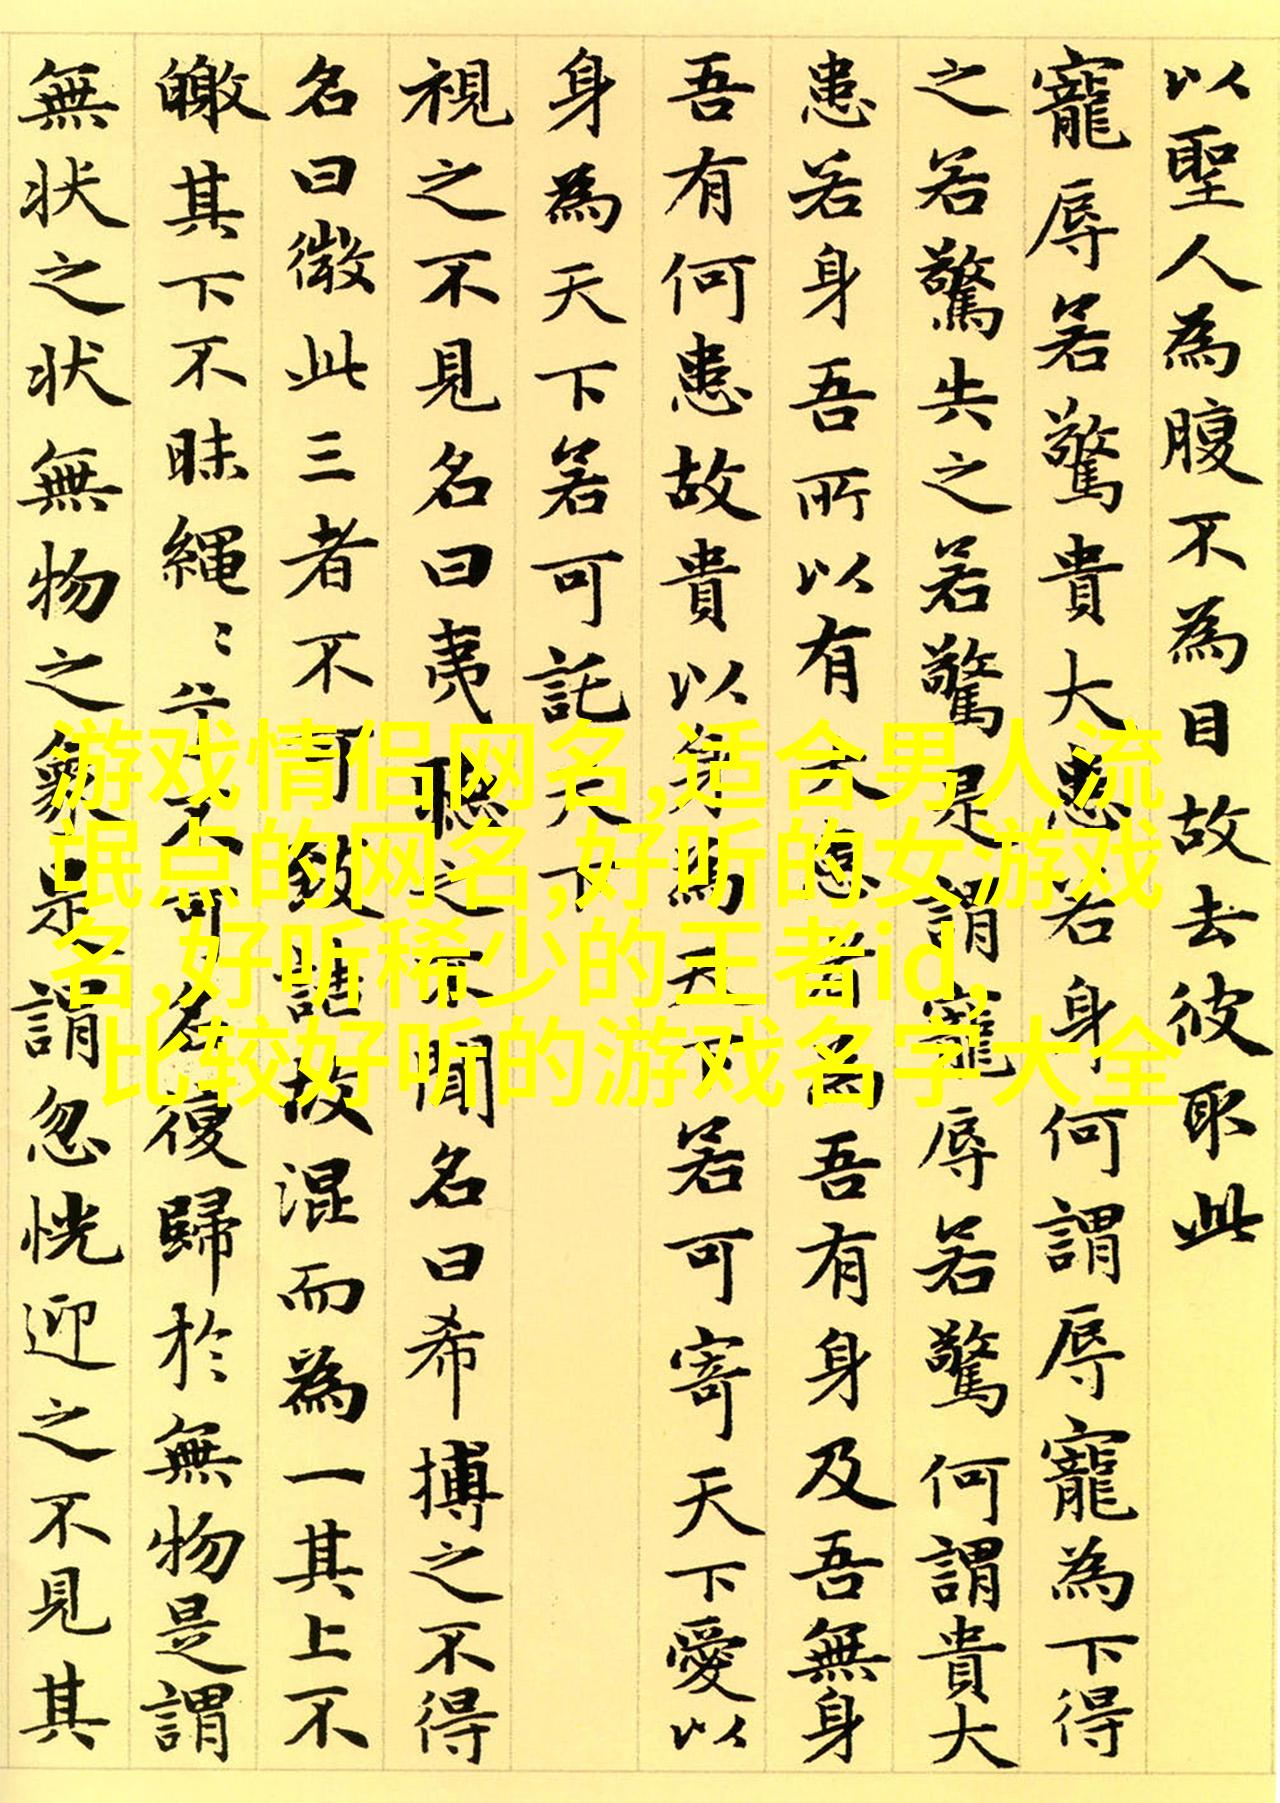 以聖人為腹不為目故去彼取此
寵辱若驚貴大患若身何謂辱寵為下得
之若驚失之若驚是謂寵辱若驚何謂貴大
患若身吾所以有大患者為吾有身及吾無身
吾有何患故貴以身為天下若可寄天下愛以
身為天下若可託天下
視之不見名曰夷聽之不聞名曰希搏之不得
名曰微此三者不可致詰故混而為一其上不
皦其下不昧繩〻兮不可名復歸於無物是謂
無状之状無物之象是謂忽恍迎之不見其
游戏情侣网名,适合男人流
氓点的网名,好听的女游戏
名,好听稀少的王者id,
比较好听的游戏名字大全